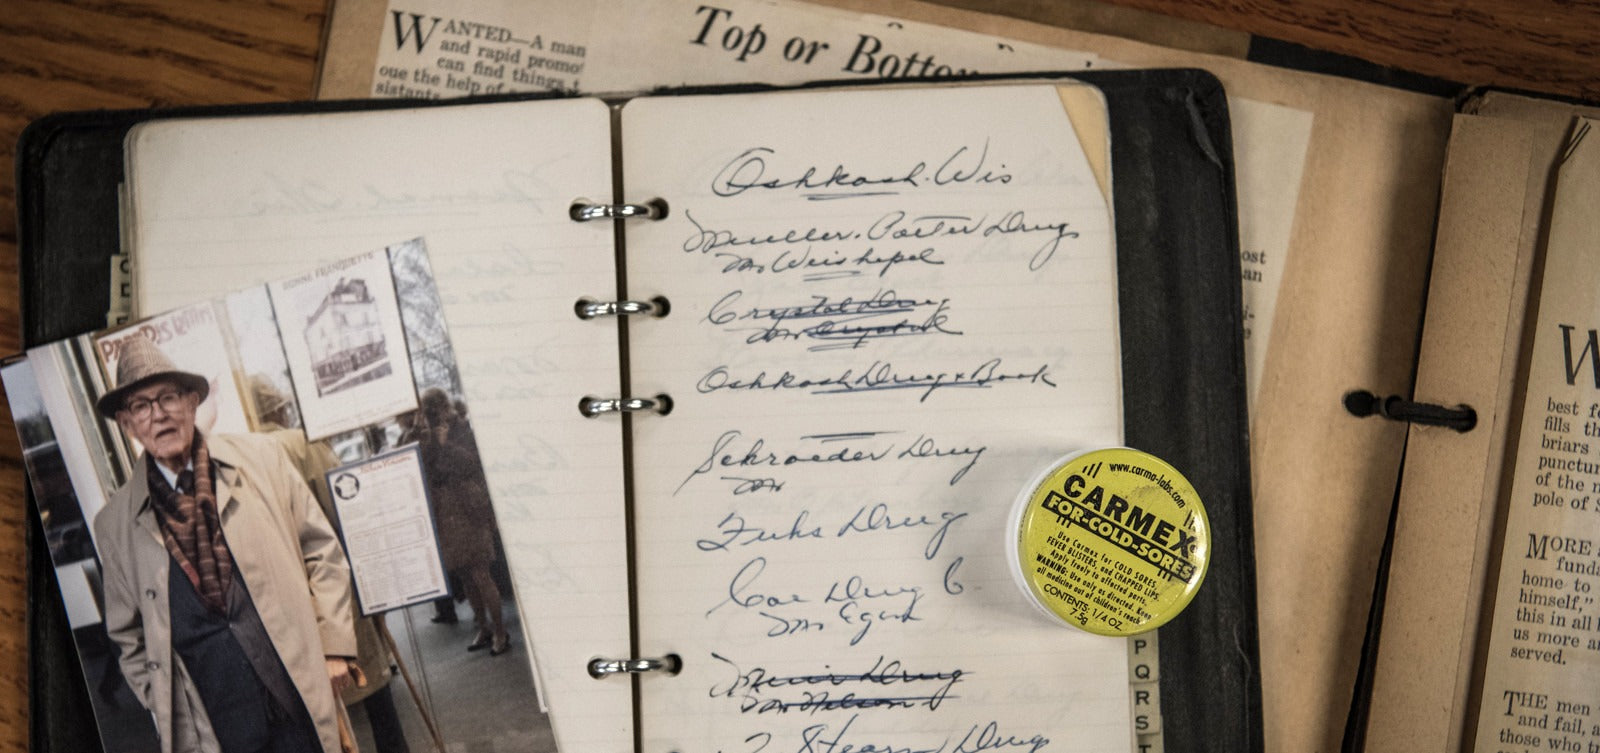 WANTED—A man
and rapid promo
can find things t
oue the help of
sistants.
Top or Bottom
Oshkosh. Wis
Mueller. Potter Drug
Mr Weishepel
Crystal Drug
Mr Crystal
Oshkosh Drug & Book
Schroeder Drug
Mr
Fuhs Drug
Coe Drug C.
Mr Egert
Muir Drug
Mr Nelson
Stearn Drug
BONNE FRANQUETTE
www.carma-labs.com
CARMEX
FOR-COLD-SORES
Use Carmex for COLD SORES,
FEVER BLISTERS, and CHAPPED LIPS.
Apply freely to affected parts.
WARNING: Use only as directed. Keep
all medicine out of children's reach.
CONTENTS: 1/4 OZ.
7.5g
P
Q
R
S
T
ost
an
W
best fo
fills th
briars
punctur
of the n
pole of S
MORE
funda
home to
himself,"
this in all
us more a
served.
THE men
and fail, a
those who t